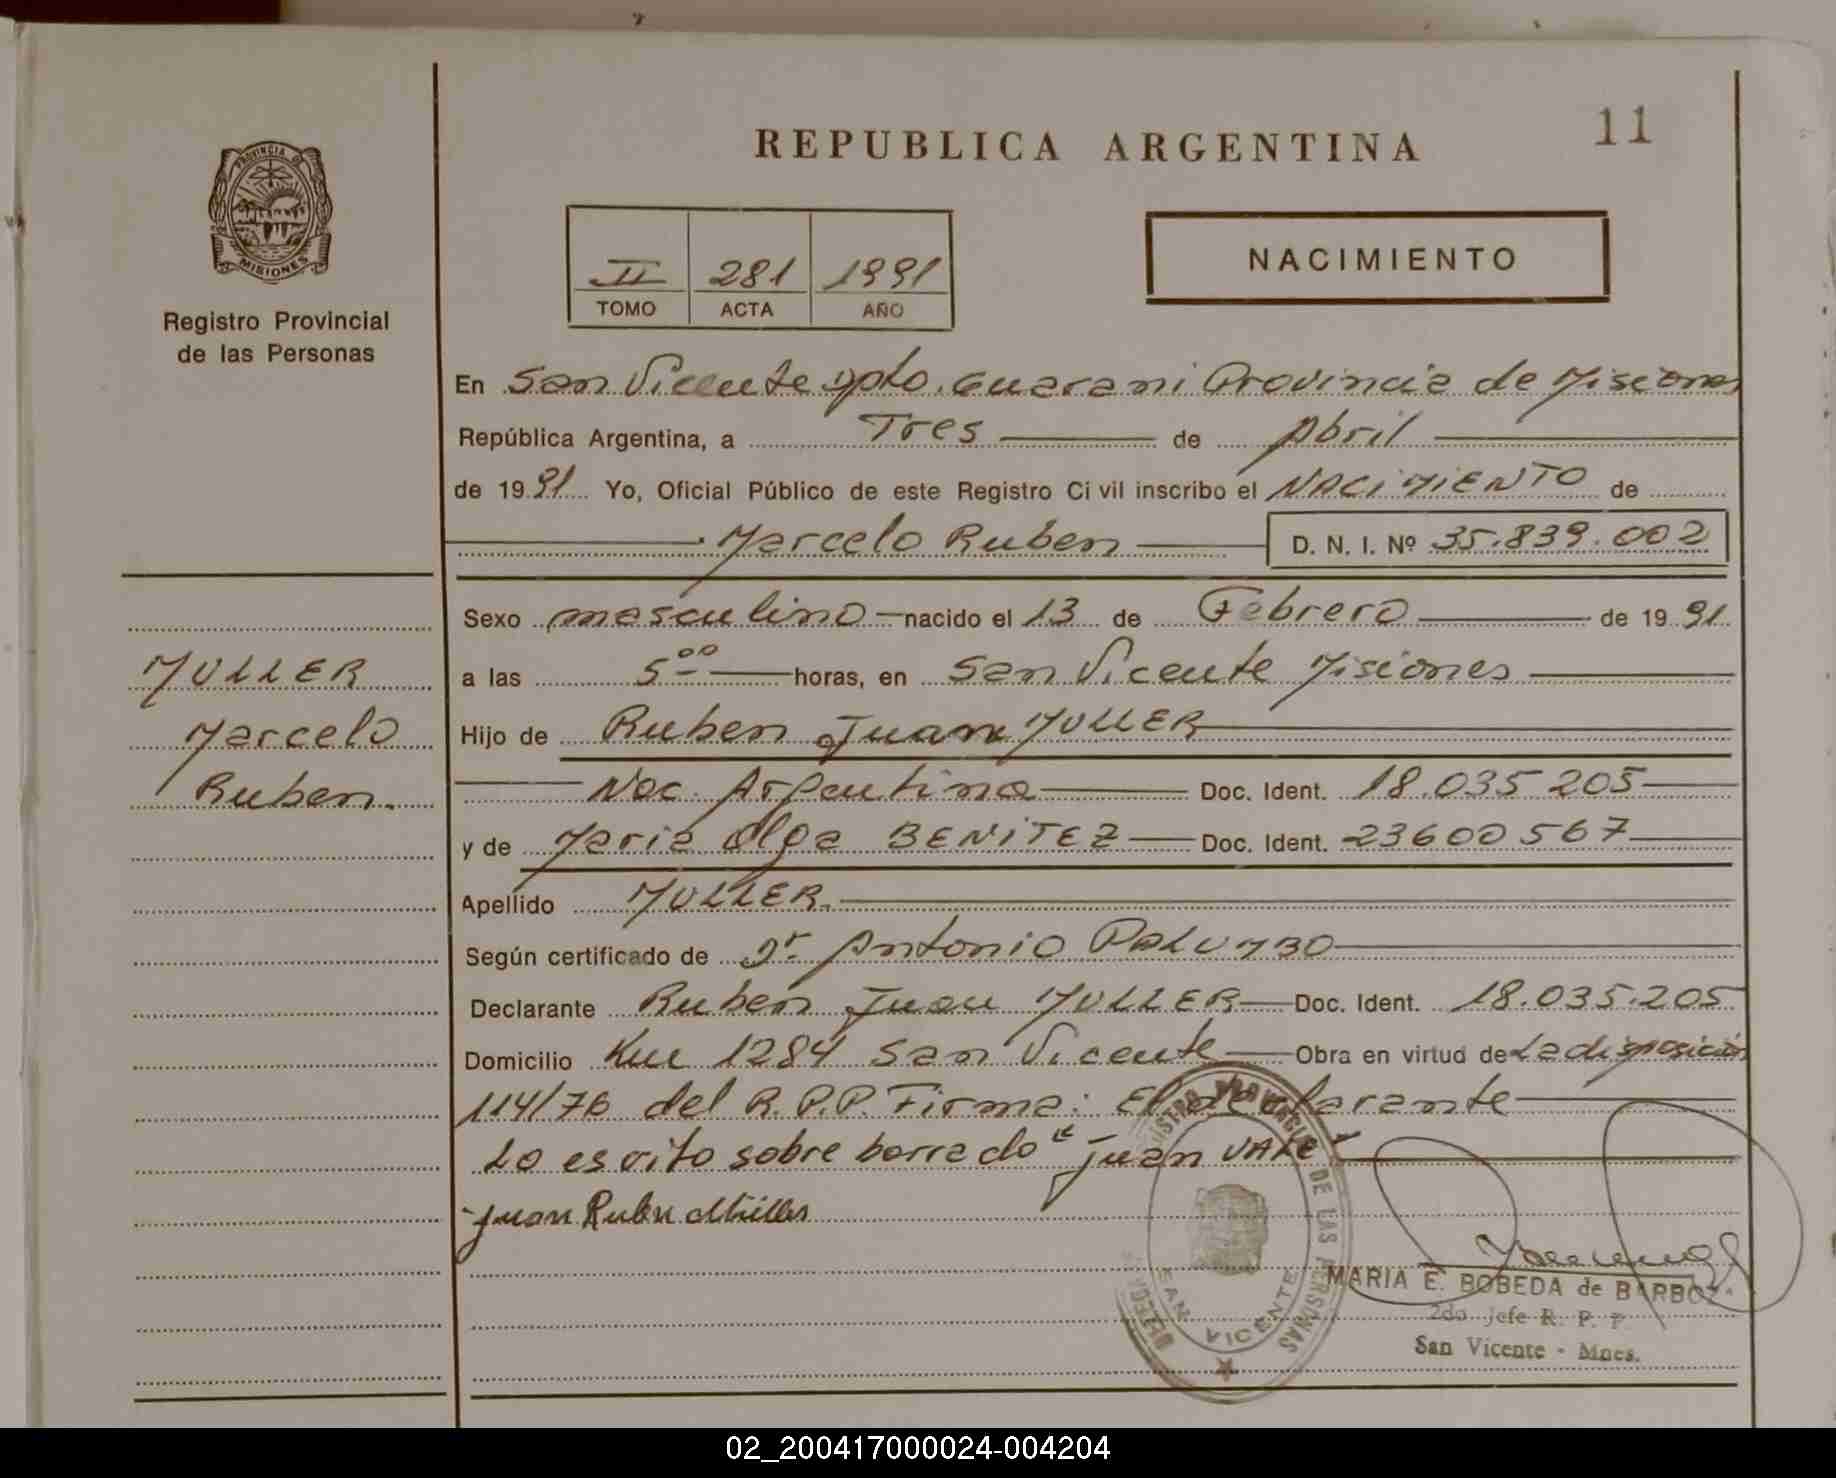 REPUBLICA ARGENTINA
11
PROVINCIA DE
MISIONES
Registro Provincial
de las Personas
II 281 1991
TOMO ACTA AÑO
NACIMIENTO
En San Vicente Dpto. Guarani Provincia de Misiones
República Argentina, a Tres de Abril
de 1991 Yo, Oficial Público de este Registro Ci vil inscribo el NACIMIENTO de
Marcelo Ruben D. N. I. Nº 35.839.002
Sexo masculino nacido el 13 de Febrero de 1991
a las 5 00 horas, en San Vicente Misiones
Hijo de Ruben Juan MULLER
Nac. Argentina Doc. Ident. 18.035 205
y de Maria Olga BENITEZ Doc. Ident. 23600567
Apellido MULLER.
Según certificado de Dr Antonio PALUMBO
Declarante Ruben Juan MULLER Doc. Ident. 18.035.205
Domicilio Km 1284 San Vicente Obra en virtud de La disposición
114/76 del R.P.P. Firma: El declarante
Lo escrito sobre borrado "Juan VALE
Juan Ruben Müller
MULLER
Marcelo
Ruben.
REGISTRO PROVINCIAL DE LAS PERSONAS
SAN VICENTE
MARIA E. BOBEDA de BARBOZA
2do Jefe R. P. P.
San Vicente - Mnes.
02_200417000024-004204